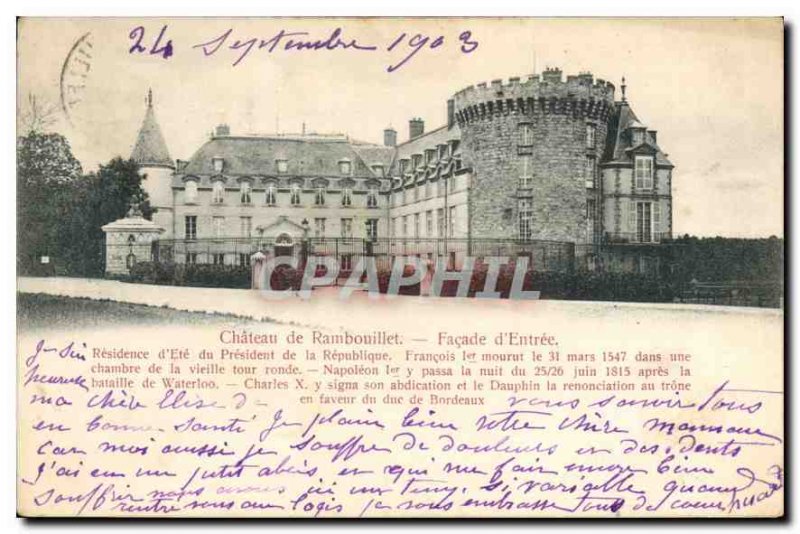 24 septembre 1903
VILLE
CAPHIL
Château de Rambouillet. — Façade d'Entrée.
Résidence d'Eté du Président de la République. François Ier mourut le 31 mars 1547 dans une
chambre de la vieille tour ronde. — Napoléon Ier y passa la nuit du 25/26 juin 1815 après la
bataille de Waterloo. — Charles X. y signa son abdication et le Dauphin la renonciation au trône
en faveur du duc de Bordeaux
Je suis
heureuse
ma chère Elise de vous savoir tous
en bonne santé Je plain bien votre chère maman
car moi aussi je souffre de douleurs et des dents
j'ai eu un petit abcès et qui me fair bien
souffrir nous avons ici un temp si variable quand
rentre au logis je vous embrasse tous de coeur